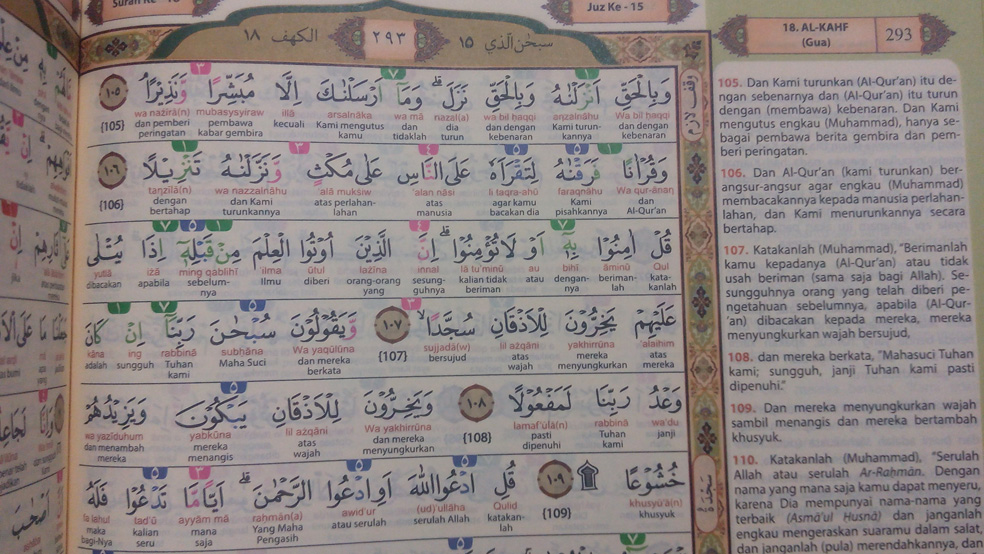 Juz Ke - 15
الكهف ١٨
٢٩٣
سبحن الذي ١٥
18. AL-KAHF
(Gua)
293
وَبِالْحَقِّ اَنْزَلْنٰهُ وَبِالْحَقِّ نَزَلَۗ وَمَآ اَرْسَلْنٰكَ اِلَّا مُبَشِّرًا وَّنَذِيْرًا ١٠٥
Wa bil ḥaqqi anzalnāhu wa bil ḥaqqi nazal(a) wa mā arsalnāka illā mubasysyiraw wa nażīrā(n) {105}
dan dengan kebenaran Kami turunkannya dan dengan kebenaran dia turun dan tidaklah Kami mengutus kamu kecuali pembawa kabar gembira dan pemberi peringatan
وَقُرْاٰنًا فَرَقْنٰهُ لِتَقْرَاَهٗ عَلَى النَّاسِ عَلٰى مُكْثٍ وَّنَزَّلْنٰهُ تَنْزِيْلًا ١٠٦
Wa qur-ānan faraqnāhu li taqra-ahū 'alan nāsi 'alā mukṡiw wa nazzalnāhu tanzīlā(n) {106}
dan Al-Qur'an Kami pisahkannya agar kamu bacakan dia atas manusia atas perlahan-lahan dan Kami turunkannya dengan bertahap
قُلْ اٰمِنُوْا بِهٖٓ اَوْ لَا تُؤْمِنُوْاۗ اِنَّ الَّذِيْنَ اُوْتُوا الْعِلْمَ مِنْ قَبْلِهٖٓ اِذَا يُتْلٰى
Qul āminū bihī au lā tu'minū innal lażīna ūtul 'ilma ming qablihī iżā yutlā
katakanlah berimanlah dengannya atau kalian tidak beriman sesungguhnya orang-orang yang diberi Ilmu sebelumnya apabila dibacakan
عَلَيْهِمْ يَخِرُّوْنَ لِلْاَذْقَانِ سُجَّدًا ١٠٧ وَّيَقُوْلُوْنَ سُبْحٰنَ رَبِّنَآ اِنْ كَانَ
'alaihim yakhirrūna lil ażqāni sujjadā(w) {107} Wa yaqūlūna subḥāna rabbinā ing kāna
atas mereka mereka menyungkurkan atas wajah bersujud dan mereka berkata Maha Suci Tuhan kami sungguh adalah
وَعْدُ رَبِّنَا لَمَفْعُوْلًا ١٠٨ وَيَخِرُّوْنَ لِلْاَذْقَانِ يَبْكُوْنَ وَيَزِيْدُهُمْ
wa'du rabbinā lamaf'ūlā(n) {108} Wa yakhirrūna lil ażqāni yabkūna wa yazīduhum
janji Tuhan kami pasti dipenuhi dan mereka menyungkurkan atas wajah mereka menangis dan menambah mereka
خُشُوْعًا ١٠٩ قُلِ ادْعُوا اللّٰهَ اَوِ ادْعُوا الرَّحْمٰنَۗ اَيًّا مَّا تَدْعُوْا فَلَهُ
khusyū'ā(n) {109} Qulid (ud)'ullāha awid'ur raḥmān(a) ayyām mā tad'ū fa lahul
khusyuk katakanlah serulah Allah atau serulah Yang Maha Pengasih mana saja kalian seru maka bagi-Nya
105. Dan Kami turunkan (Al-Qur'an) itu de-
ngan sebenarnya dan (Al-Qur'an) itu turun
dengan (membawa) kebenaran. Dan Kami
mengutus engkau (Muhammad), hanya se-
bagai pembawa berita gembira dan pem-
beri peringatan.
106. Dan Al-Qur'an (kami turunkan) ber-
angsur-angsur agar engkau (Muhammad)
membacakannya kepada manusia perlahan-
lahan, dan Kami menurunkannya secara
bertahap.
107. Katakanlah (Muhammad), "Berimanlah
kamu kepadanya (Al-Qur'an) atau tidak
usah beriman (sama saja bagi Allah). Se-
sungguhnya orang yang telah diberi pe-
ngetahuan sebelumnya, apabila (Al-Qur-
'an) dibacakan kepada mereka, mereka
menyungkurkan wajah bersujud,
108. dan mereka berkata, "Mahasuci Tuhan
kami; sungguh, janji Tuhan kami pasti
dipenuhi."
109. Dan mereka menyungkurkan wajah
sambil menangis dan mereka bertambah
khusyuk.
110. Katakanlah (Muhammad), "Serulah
Allah atau serulah Ar-Raḥmān. Dengan
nama yang mana saja kamu dapat menyeru,
karena Dia mempunyai nama-nama yang
terbaik (Asmā'ul Husnā) dan janganlah
engkau mengeraskan suaramu dalam salat,
dan janganlah (pula) merendahkannya, dan